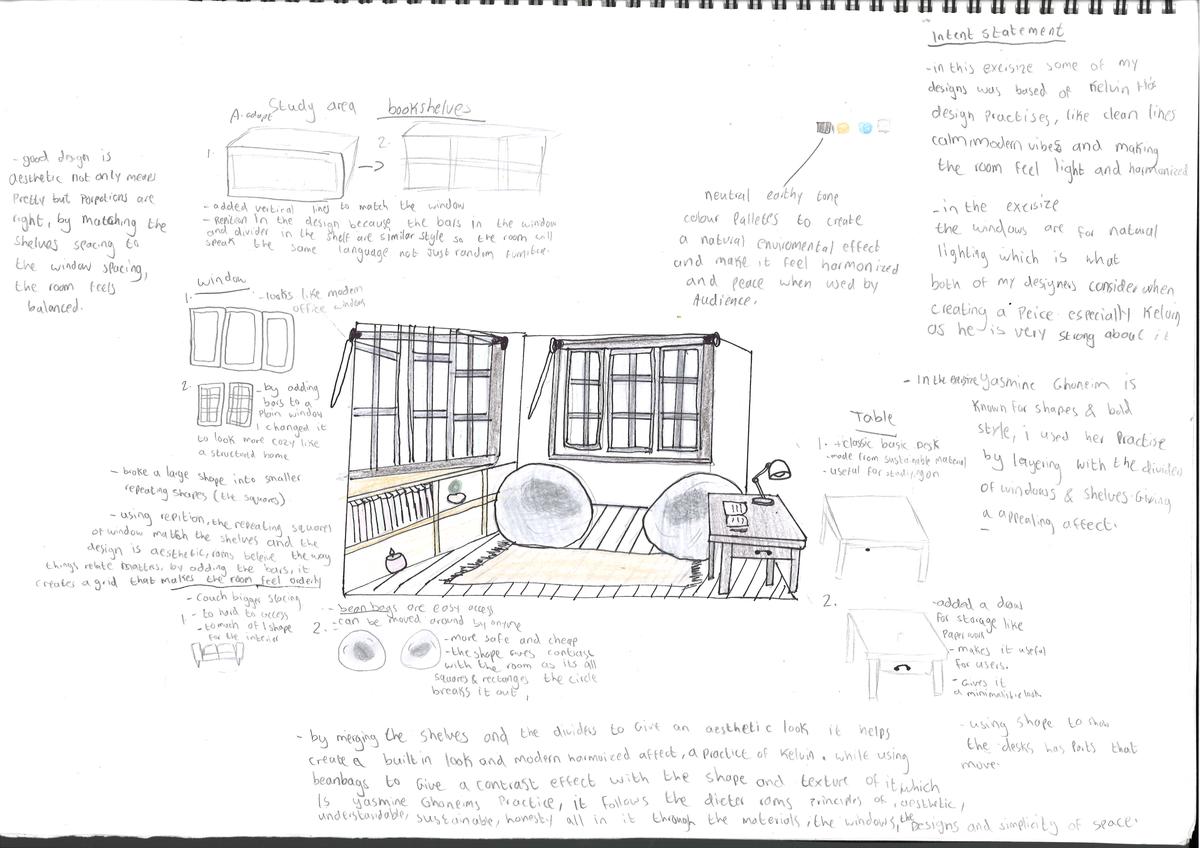 Intent statement
-in this excisize some of my
designs was based of Kelvin Ho's
design Practises, like clean lines
calm modern vibes and making
the room feel light and harmonized
-in the excisize
the windows are for natural
lighting which is what
both of my designers consider when
creating a Peice especially Kelvin
as he is very strong about it
- In the exercise Yasmine Ghoneim is
Known for shapes & bold
style, i used her Practise
by layering with the divider
of windows & shelves. Giving
a appealing affect.
Study area bookshelves
A.adapt
1.
2.
- added vertical lines to match the window
- Repition in the design because the bars in the window
and divider in the shelf are similar style so the room will
speak the same language not just random furniture.
- good design is
aesthetic not only means
Pretty but Porpotions are
right, by matching the
shelves spacing to
the window spacing,
the room feels
balanced.
neutral earthy tone
colour Palletes to create
a natural enviromental effect
and make it feel harmonized
and peace when used by
Audience.
window
1.
-looks like modern
office window
2.
-by adding
bars to a
Plain window
I changed it
to look more cozy like
a structured home
- broke a large shape into smaller
repeating shapes (the squares)
- using repition, the repeating squares
of window match the shelves and the
design is aesthetic, rams beleive the way
things relate matters. by adding the bars, it
creates a grid that makes the room feel orderly
- Couch bigger spacing
1
- to hard to access
- to much of 1 shape
for the interior
- bean bags are easy access
2.
-can be moved around by anyone
-more safe and cheap
-the shape gives contrast
with the room as its all
squares & rectanges the circle
breaks it out,
Table
1.
+classic basic desk
-made from sustainable material
-useful for studying on
2.
-added a draw
for storage like
Paper work
- makes it useful
for users.
- Gives it
a minimalistic look
- using shape to show
the desks has Parts that
move.
- by merging the shelves and the dividers to Give an aesthetic look it helps
create a built in look and modern harmoized affect, a practice of Kelvin. while using
beanbags to Give a contrast effect with the shape and texture of it, which
Is Yasmine Ghoneims Practice, it follows the dieter rams Principles of, aesthetic,
understandable, sustainable, honesty all in it through the materials, the windows, the Designs and simplicity of space.